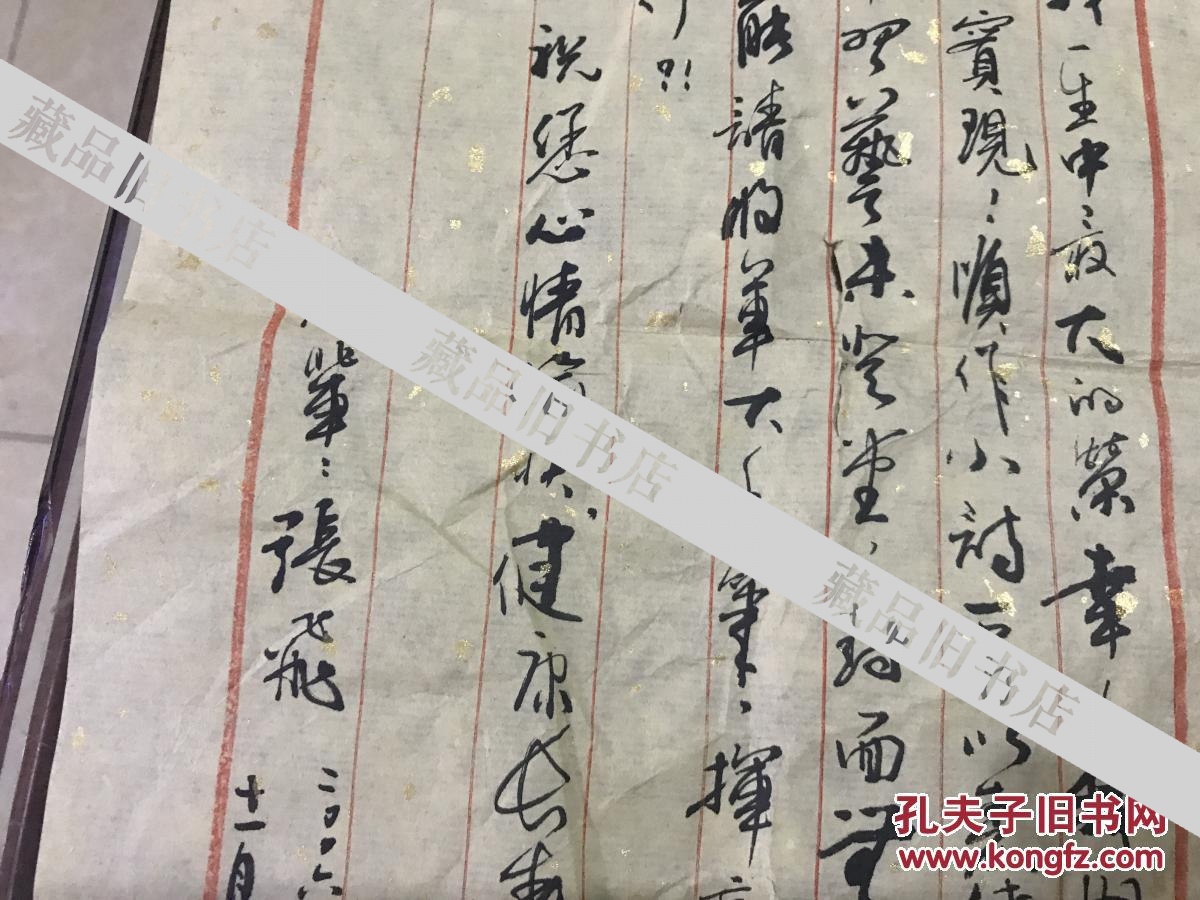 一生中最大的榮幸
實現順作小詩一以
習藝未登堂而
能請將軍大筆揮
?!
祝您心情健康長壽
輩張飛
二〇〇六
十一月
藏品旧书店
藏品旧书店
藏品旧书店
孔夫子旧书网
www.kongfz.com